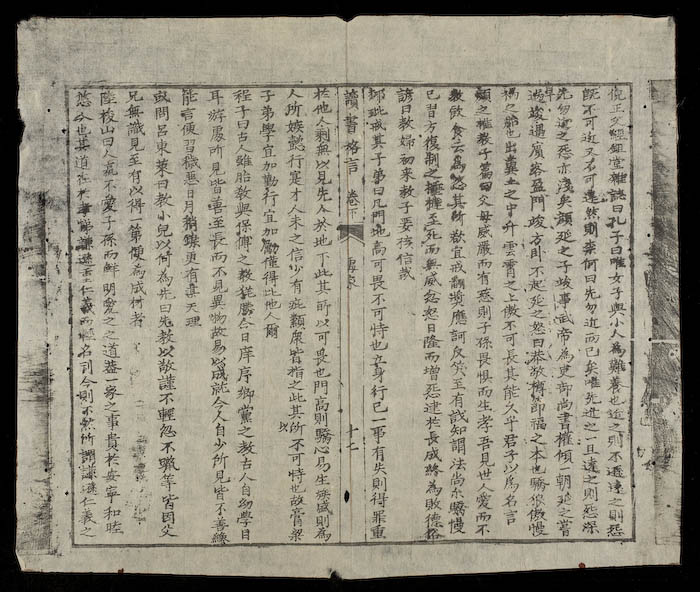 倪正父經鉏堂雜誌曰孔子曰唯女子與小人為難養也近之則不遜遠之則怨
既不可近又不可遠然則柰何曰先勿近而已矣唯先近之一旦遠之則怨深
先勿近之怨亦淺矣顔延之子竣事武帝為吏部尚書權傾一朝延之嘗
早過竣遇賓客盈門竣方卧不起延之怒曰恭敬樽節福之本也驕狠傲慢
禍之始也出糞土之中升雲霄之上傲不可長其能久乎君子以為名言
顔之推教子篇曰父母威嚴而有慈則子孫畏惧而生孝吾見世人愛而不
教飲食云為恣其所欲宜戒翻奬應訶反笑至有識知謂法尚尓驕慢
已習方復制之捶撻至死而無威忿怒日隆而增怨逮於長成終為敗德俗
諺曰教婦初來教子嬰孩信哉
柳玭戒其子弟曰凡門地高可畏不可恃也立身行己一事有失則得罪重
讀書格言 卷下 十二
於他人剩無以見先人於地下此其所以可畏也門高則驕心易生族盛則為
人所嫉懿行寔才人未之信少有疵纇衆皆指之此其所以不可恃也故膏粱
子弟學宜加勤行宜加勵僅得比他人爾
程子曰古人雖胎教與保傅之教猶勝今日庠序鄉黨之教古人自幼學耳目
耳游處所見皆善至長而不見異物故易以成就今人自少所見皆不善纔
能言便習穢惡日月銷鑠更有甚天理
或問呂東萊曰教小兒以何為先曰先教以敬謹不輕忽不躐等皆因父
兄無識見至有以得一第便為成材者
陸梭山曰人孰不愛子孫而鮮明愛之之道蓋一家之事貴於安寧和睦
悠久也其道在於孝悌謙遜至仁義而輕名利今則不然所謂謙遜仁義之